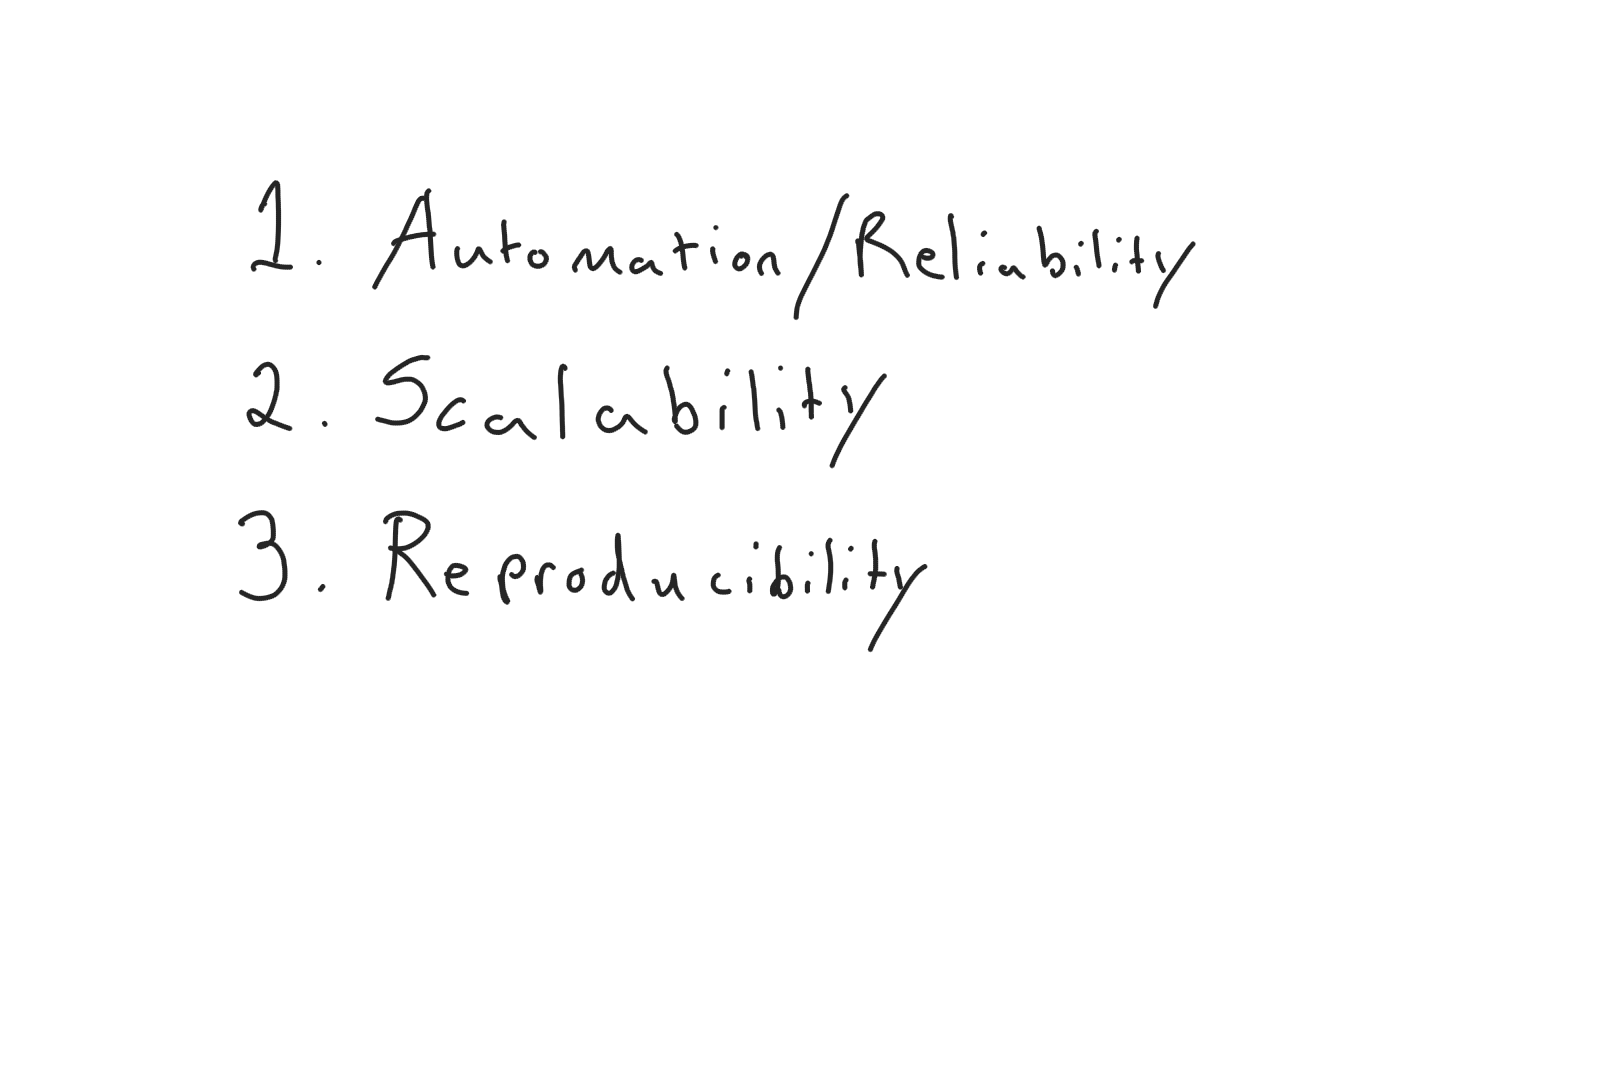 1. Automation/Reliability
2. Scalability
3. Reproducibility